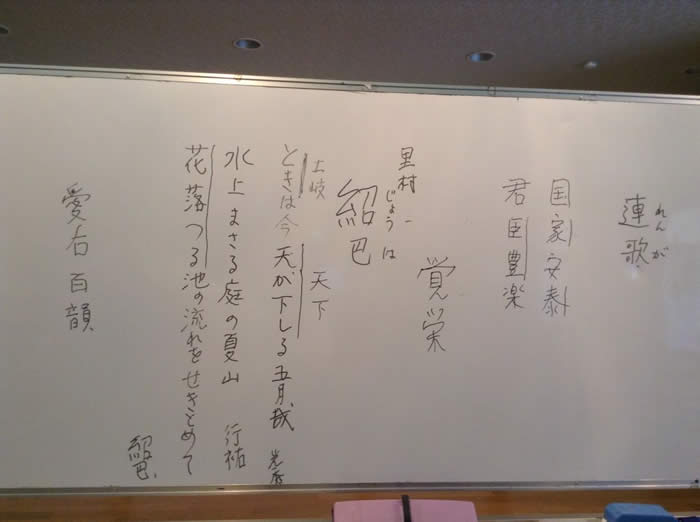 れんが
連歌
国家安泰
君臣豊楽
覚栄
里村 じょうは
紹巴
土岐 天下
ときは今天が下しる五月哉 光秀
水上まさる庭の夏山 行祐
花落つる池の流れをせきとめて
紹巴
愛右百韻